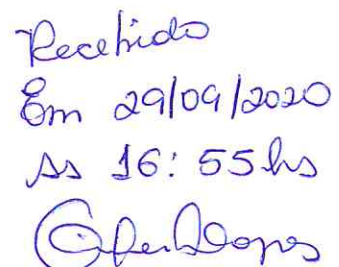 Recebido
Em 29/09/2020
As 16:55hs